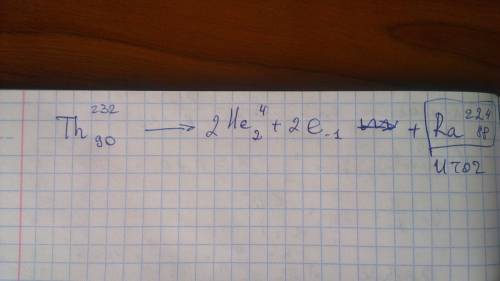 Th²³²₉₀ → 2He⁴₂ + 2e₋₁ + Ra²²⁴₈₈
итог